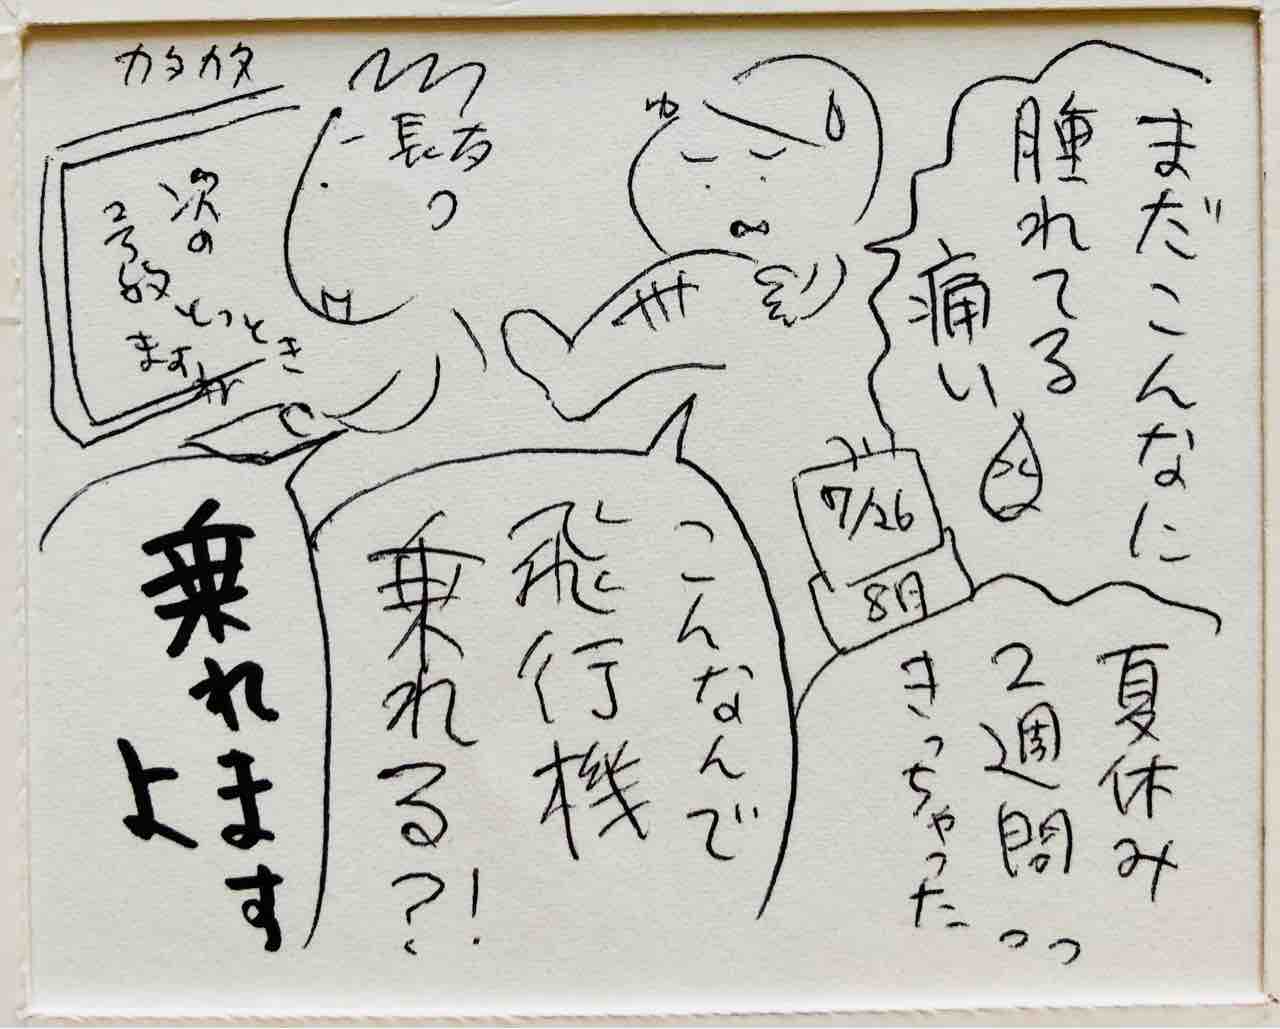 まだこんなに
腫れてる
痛い
7/26
8月
夏休み
2週間
きっちゃった
っっ
ゆ
こんなんで
飛行機
乗れる?!
カタカタ
長女
次の
予約
とっとき
ますね
乗れます
よ